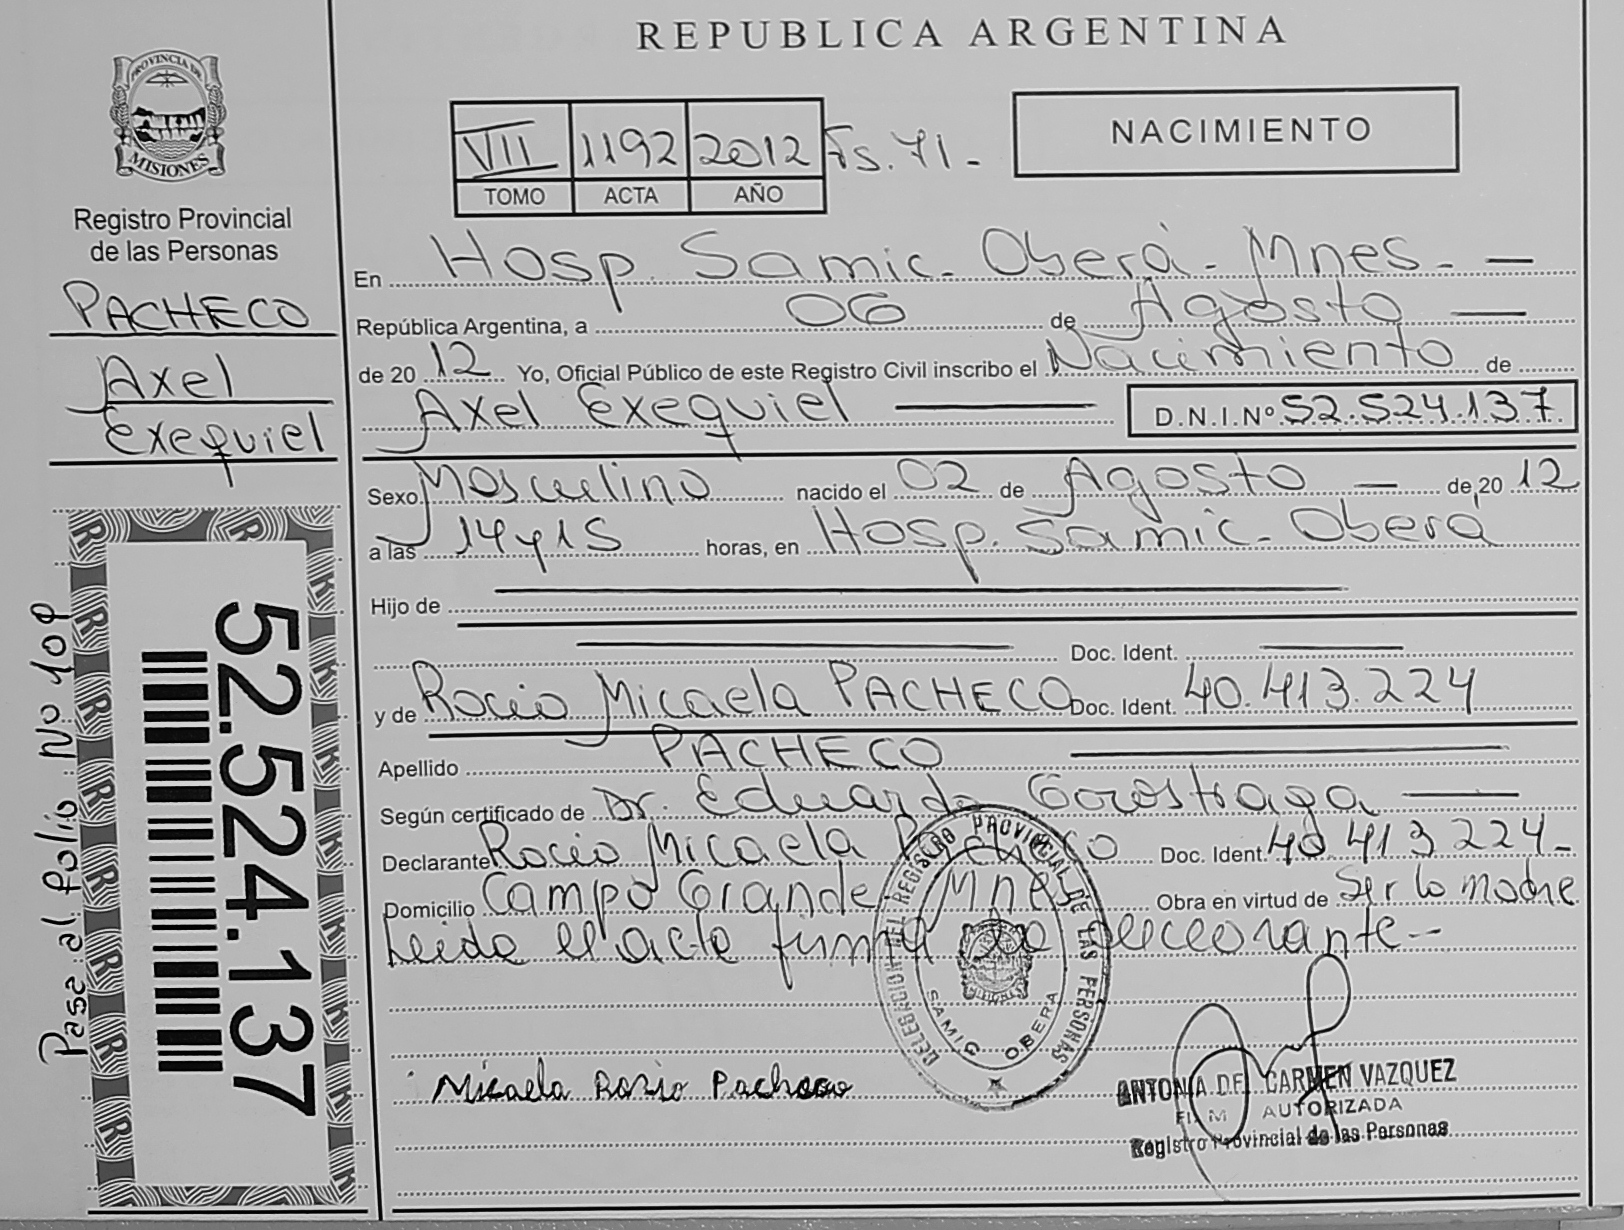 REPUBLICA ARGENTINA
PROVINCIA DE
MISIONES
Registro Provincial
de las Personas
PACHECO
Axel
Exequiel
52.524.137
Pasa al folio No 109
VII 1192 2012 Fs. 71.-
TOMO ACTA AÑO
NACIMIENTO
En Hosp. Samic. Oberá. Mnes. —
República Argentina, a 06 de Agosto —
de 20 12 Yo, Oficial Público de este Registro Civil inscribo el Nacimiento de
Axel Exequiel — D.N.I.Nº 52.524.137
Sexo Masculino nacido el 02 de Agosto — de 20 12
a las 14 y 15 horas, en Hosp. Samic. Oberá
Hijo de —
— Doc. Ident. —
y de Rocio Micaela PACHECO Doc. Ident. 40.413.224
Apellido PACHECO —
Según certificado de Dr. Eduardo Gorostiaga —
Declarante Rocio Micaela Pacheco Doc. Ident. 40 413 224-
Domicilio Campo Grande Mnes Obra en virtud de Ser la madre
Leida el acta firma la
DELEGACION DEL REGISTRO PROVINCIAL DE LAS PERSONAS
SAMIC OBERA
Micaela Rosio Pacheco
ANTONIA DEL CARMEN VAZQUEZ
AUTORIZADA
Registro Provincial de las Personas